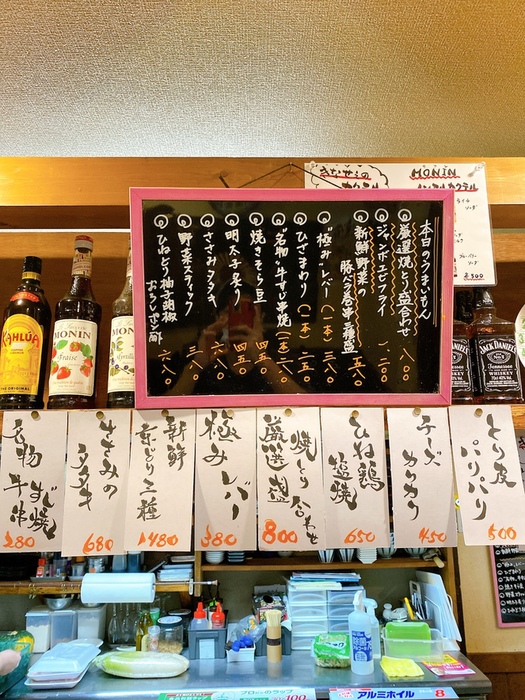 本日のうまいもん
厳選焼とり盛合わせ 八〇〇
ジャンボエビフライ 一、二〇〇
新鮮野菜の
豚バラ巻串三種盛 五八〇
極み・レバー（一本）三八〇
ひざまわり（一本）二五〇
名物・牛すじ串焼（一本）二八〇
焼きそら豆 四五〇
明太子炙り 四五〇
ささみタタキ 六八〇
野菜スティック 三八〇
ひねとり柚子胡椒
おろしポン酢 六八〇
MONIN
KAHLÚA
MONIN
Fraise
MONIN
JACK DANIEL'S
Tennessee
WHISKEY
とり皮
パリパリ
500
チーズ
カリカリ
450
ひね鶏
塩焼
650
焼とり
厳選盛
合わせ
800
極みレバー
380
新鮮
造り三種
1480
ささみの
タタキ
680
名物
牛すじ串焼
280
除菌
アルコール
アルミホイル
100
8